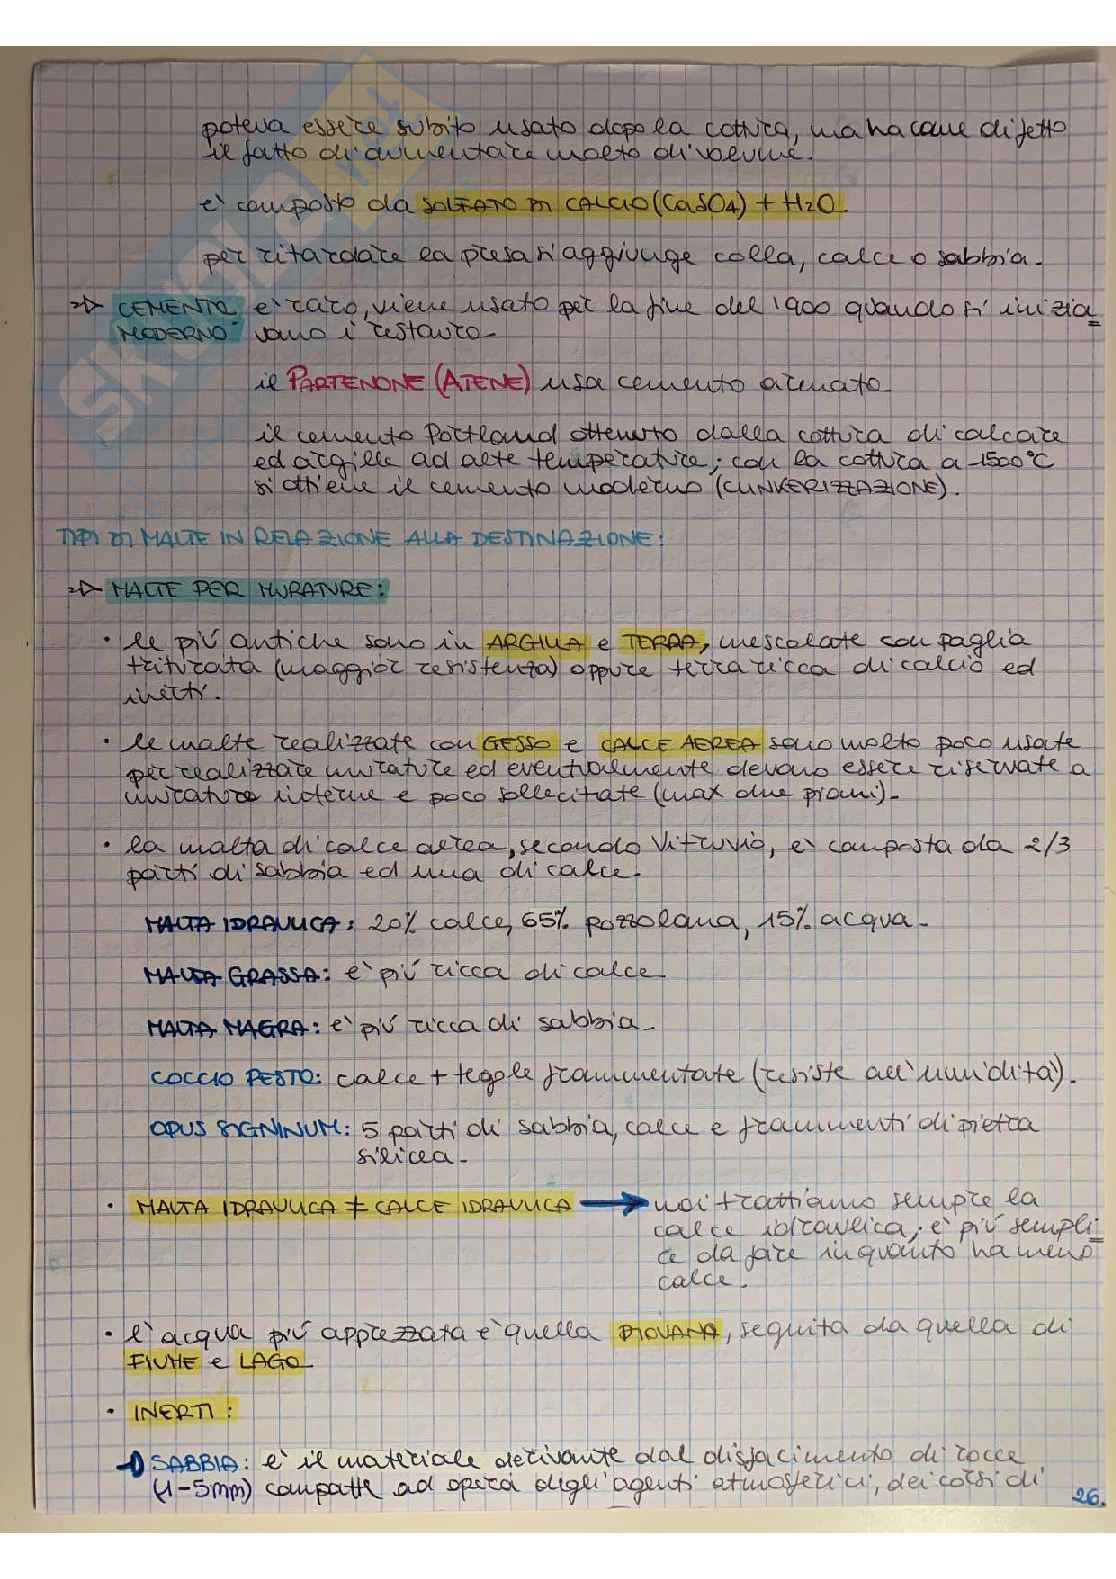 poteva essere subito usato dopo la cottura, ma ha come difetto
il fatto di aumentare molto di volume.
è composto da SOLFATO DI CALCIO (CaSO4) + H2O.
per ritardare la presa si aggiunge colla, calce o sabbia.
CEMENTO è raro, viene usato per la fine del 1900 quando si inizia
MODERNO: vano i restauro.
il PARTENONE (ATENE) usa cemento armato.
il cemento Portland ottenuto dalla cottura di calcare
ed argille ad alte temperature; con la cottura a ~1500°C
si ottiene il cemento moderno (CLINKERIZZAZIONE).
TIPI DI MALTE IN RELAZIONE ALLA DESTINAZIONE:
MALTE PER MURATURE:
• le più antiche sono in ARGILLA e TERRA, mescolate con paglia
triturata (maggior resistenza) oppure terra ricca di calcio ed
inerti.
• le malte realizzate con GESSO e CALCE AEREA sono molto poco usate
per realizzare murature ed eventualmente devono essere riservate a
murature interne e poco sollecitate (max due piani).
• la malta di calce aerea, secondo Vitruvio, è composta da 2/3
parti di sabbia ed una di calce.
MALTA IDRAULICA: 20% calce, 65% pozzolana, 15% acqua.
MALTA GRASSA: è più ricca di calce.
MALTA MAGRA: è più ricca di sabbia.
COCCIO PESTO: calce + tegole frammentate (resiste all'umidità).
OPUS SIGNINUM: 5 parti di sabbia, calce e frammenti di pietra
silicea.
• MALTA IDRAULICA ≠ CALCE IDRAULICA → noi trattiamo sempre la
calce idraulica; è più sempli
ce da fare in quanto ha meno
calce.
• l'acqua più apprezzata è quella PIOVANA, seguita da quella di
FIUME e LAGO.
• INERTI:
SABBIA: è il materiale derivante dal disfacimento di rocce
(1-5mm) compatte ad opera degli agenti atmosferici, dei corsi di
26.